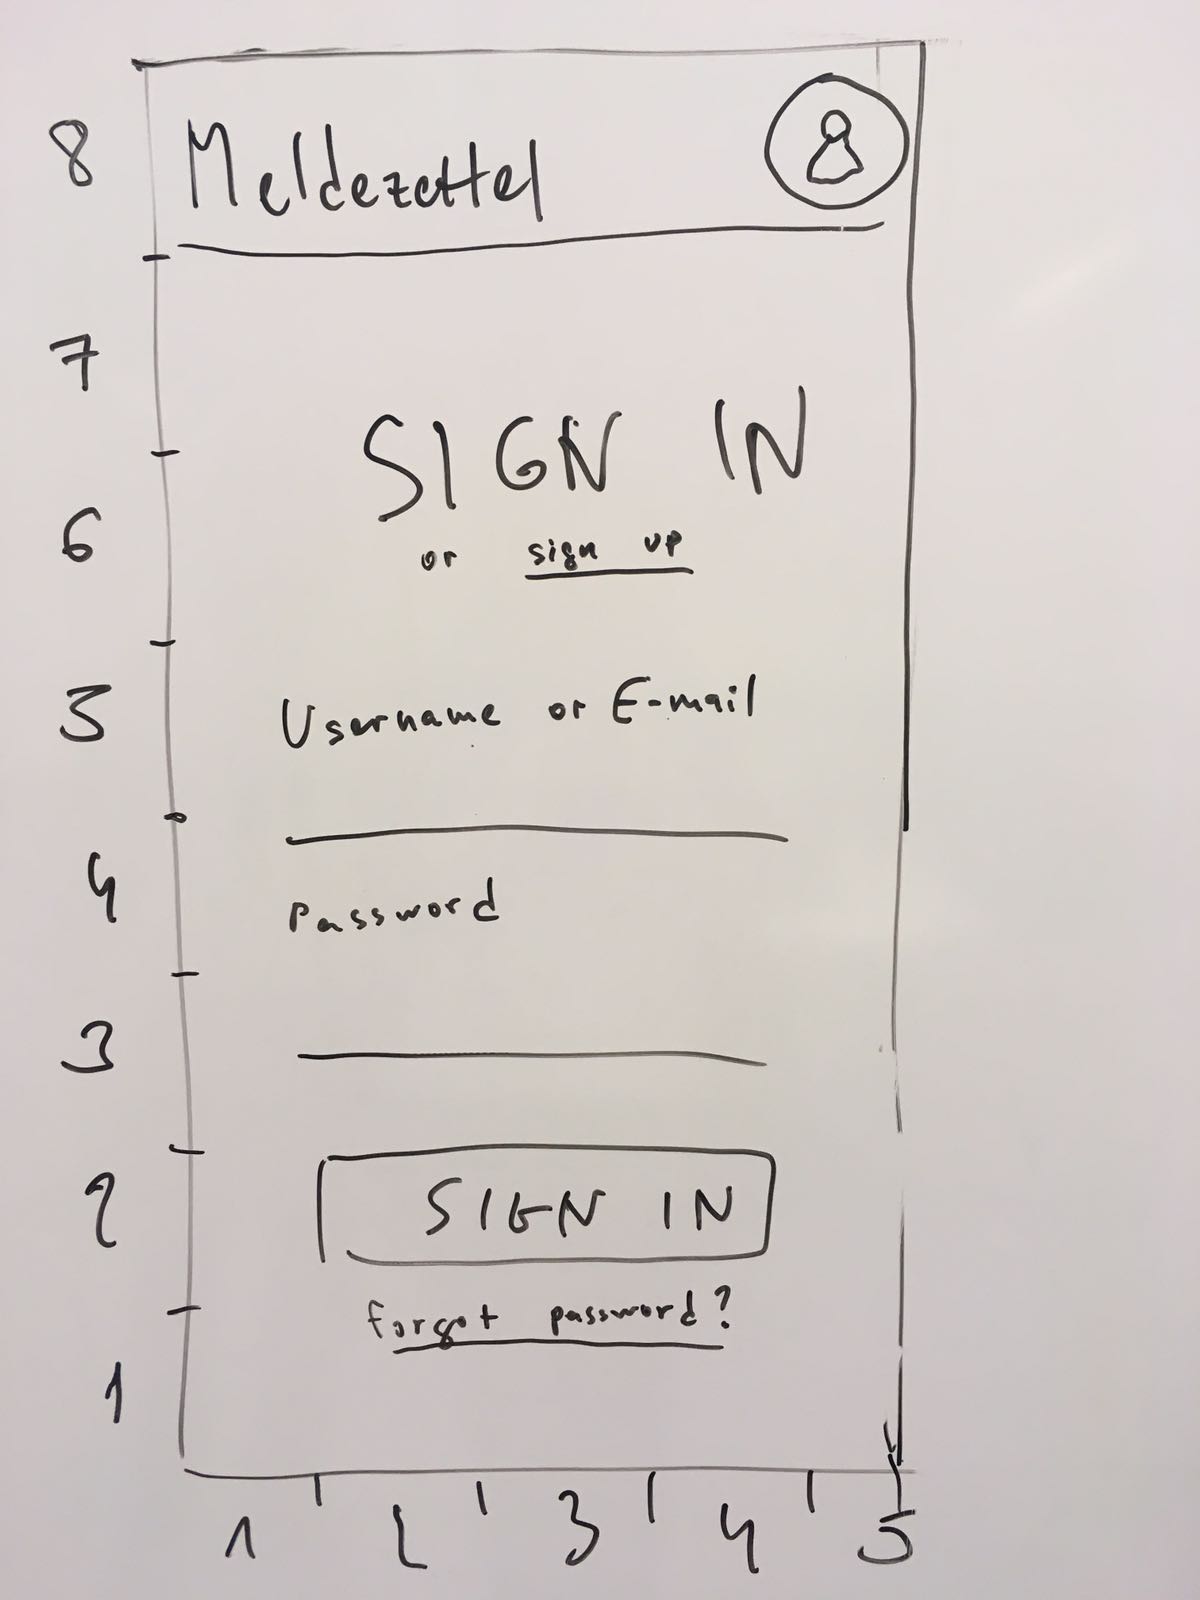 8 Meldezettel
7
SIGN IN
6 or sign up
5 Username or E-mail
4 Password
3
2 SIGN IN
forgot password?
1
1 2 3 4 5